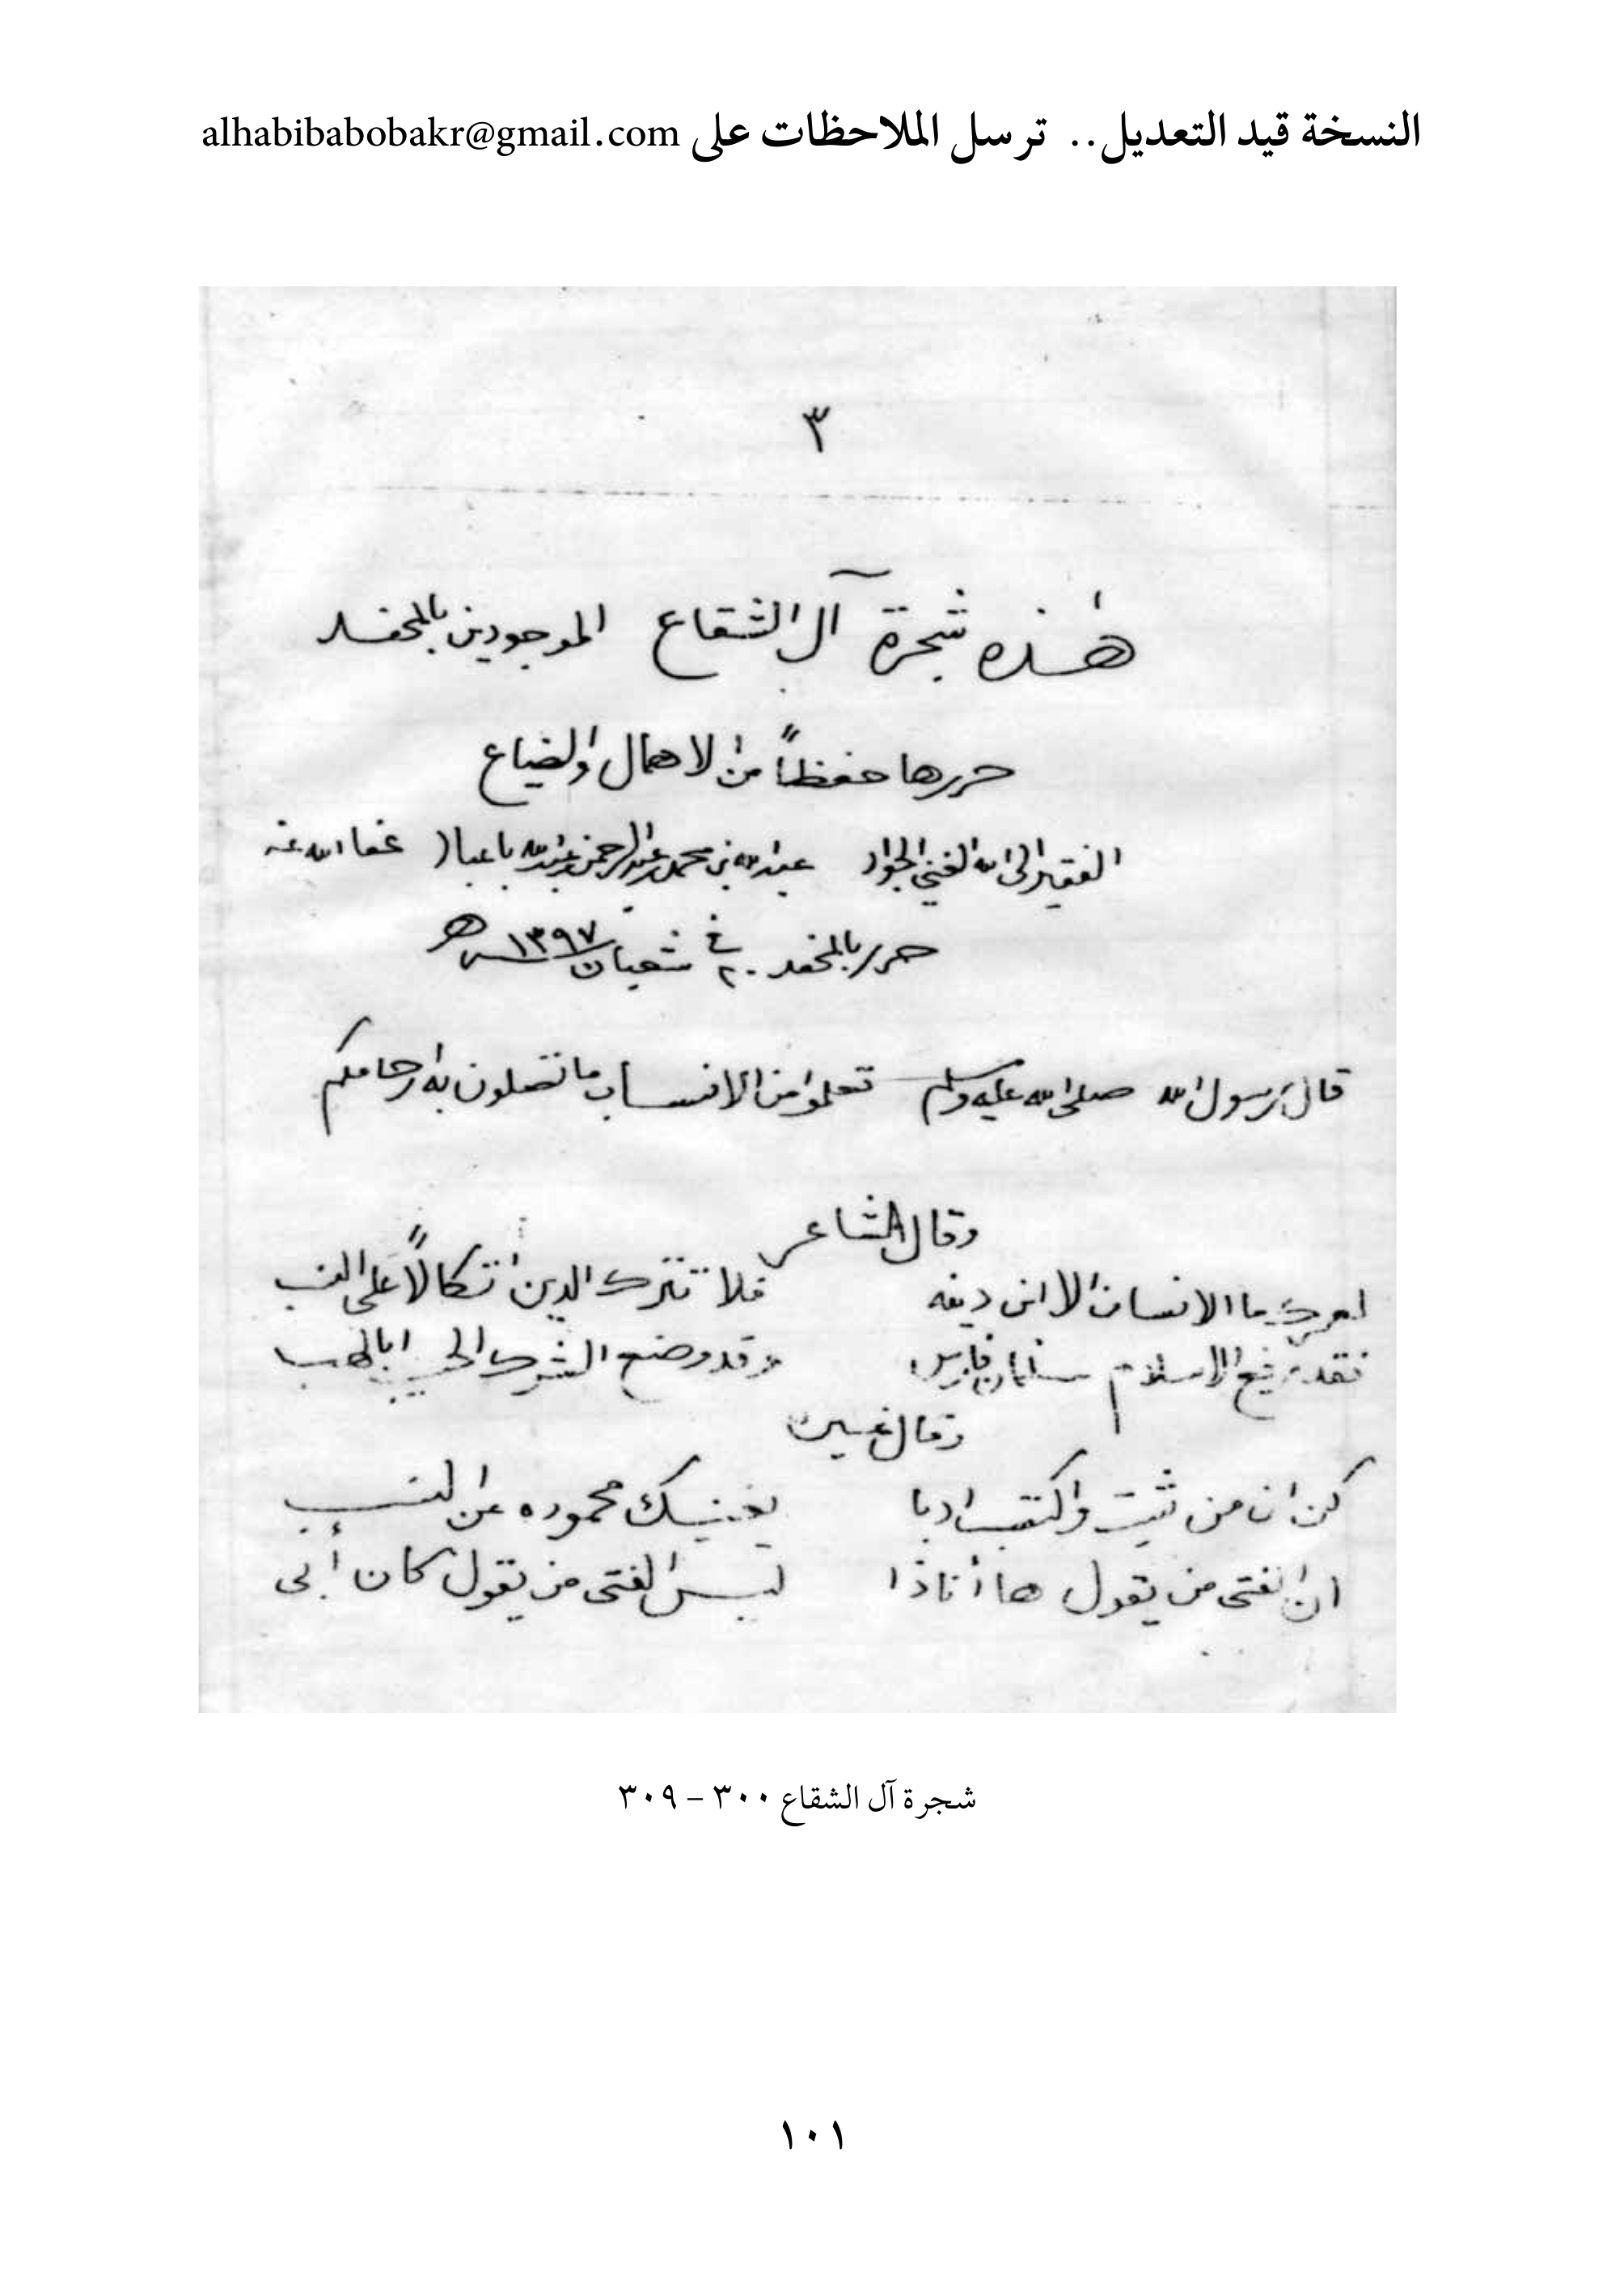 النسخة قيد التعديل.. ترسل الملاحظات على alhabibabobakr@gmail.com
٣
هٰذه شجرة آل الشقاع الموجودين بالمحفد
حررها حفظاً من الاهمال والضياع
الفقير الى الله الغني الجواد عبدالله بن محمد بن عبدالرحمن بن عبدالله باعباد عفا الله عنه
حرر بالمحفد في ٢٠ شعبان سنة ١٣٩٧ هـ
قال رسول الله صلى الله عليه وسلم تعلموا من الانساب ما تصلون به ارحامكم
وقال الشاعر
لعمرك ما الانسان الا ابن دينه فلا تترك الدين اتكالاً على النسب
فقد رفع الاسلام سلمان فارس وقد وضع الشرك الحسيب ابا لهب
وقال غيره
كن ابن من شئت واكتسب ادبا يغنيك محموده عن النسب
ان الفتى من يقول ها أناذا ليس الفتى من يقول كان أبي
شجرة آل الشقاع ٣٠٠ – ٣٠٩
١٠١